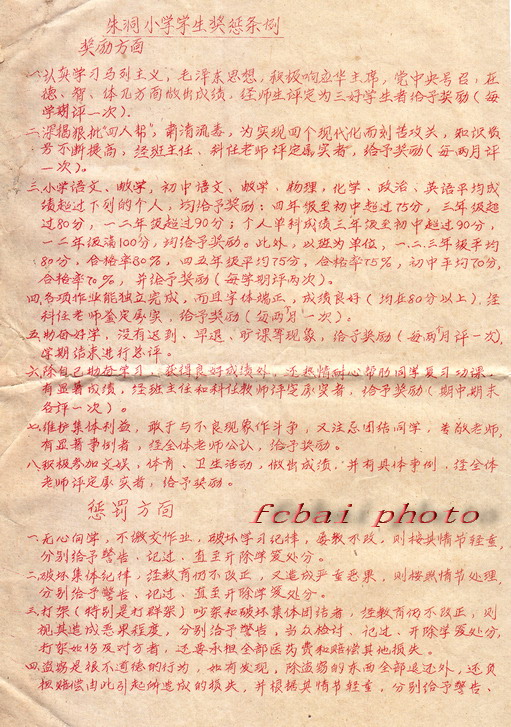 朱洞小学学生奖惩条例
奖励方面
一、认真学习马列主义，毛泽东思想，积极响应华主席，党中央号召，在
德、智、体几方面做出成绩，经师生评定为三好学生者给予奖励（每
学期评一次）.
二、深揭狠批"四人帮"，肃清流毒，为实现四个现代化而刻苦攻关，知识质
号不断提高，经班主任、科任老师评定属实者，给予奖励（每两月评
一次）。
三、小学语文、数学，初中语文、数学、物理，化学、政治、英语平均成
绩起过下列的个人，均给予奖励：四年级至初中超过75分，三年级超
过80分，一二年级超过90分；个人单科成绩三年级至初中超过90分，
一二年级满100分，均给予奖励。此外，以班为单位，一二三年级平均
80分，合格率80%，四五年级平均75分，合格率75%，初中平均70分，
合格率70%，并给予奖励（每学期评两次）。
四、各项作业能独立完成，而且字体端正，成绩良好（均在80分以上），经
科任老师鉴定属实，给予奖励（每两个月一次）。
五、勤奋好学，没有迟到、早退、旷课等现象，给予奖励（每个月评一次），
学期结束进行总评。
六、除自己勤奋学习，获得良好成绩外，还热情耐心帮助同学复习功课，
有显著成绩，经班主任和科任教师评定属实者，给予奖励（期中期末
各评一次）。
七、维护集体利益，敢于与不良现象作斗争，又注意团结同学，尊敬老师，
有显著事例者，经全体老师公认，给予奖励。
八、积极参加文娱，体育、卫生活动，做出成绩，并有具体事例，经全体
老师评定属实者，给予奖励。
惩罚方面
fcbai photo
一、无心向学，不缴交作业，破坏学习纪律，屡教不改，则按其情节轻重，
分别给予警告、记过、直至开除学爱处分。
二、破坏集体纪律，经教育仍不改正，又造成严重恶果，则按照情节处理，
分别给予警告、记过、直至开除学爱处分。
三、打架（特别是打群架）吵架和破坏集体团活者，经教育仍不改正，则
视其造成恶果程度，分别给予警告，当众检讨、记过、开除学爱处分，
打架如伤及对方者，还要承担全部医药费和赔偿其他损失。
四、盗窃是很不道德的行为，如有发现，除盗窃的东西全部追还外，还负
担赔偿由此引起所造成的损失，并根据其情节轻重，分别给予警告、